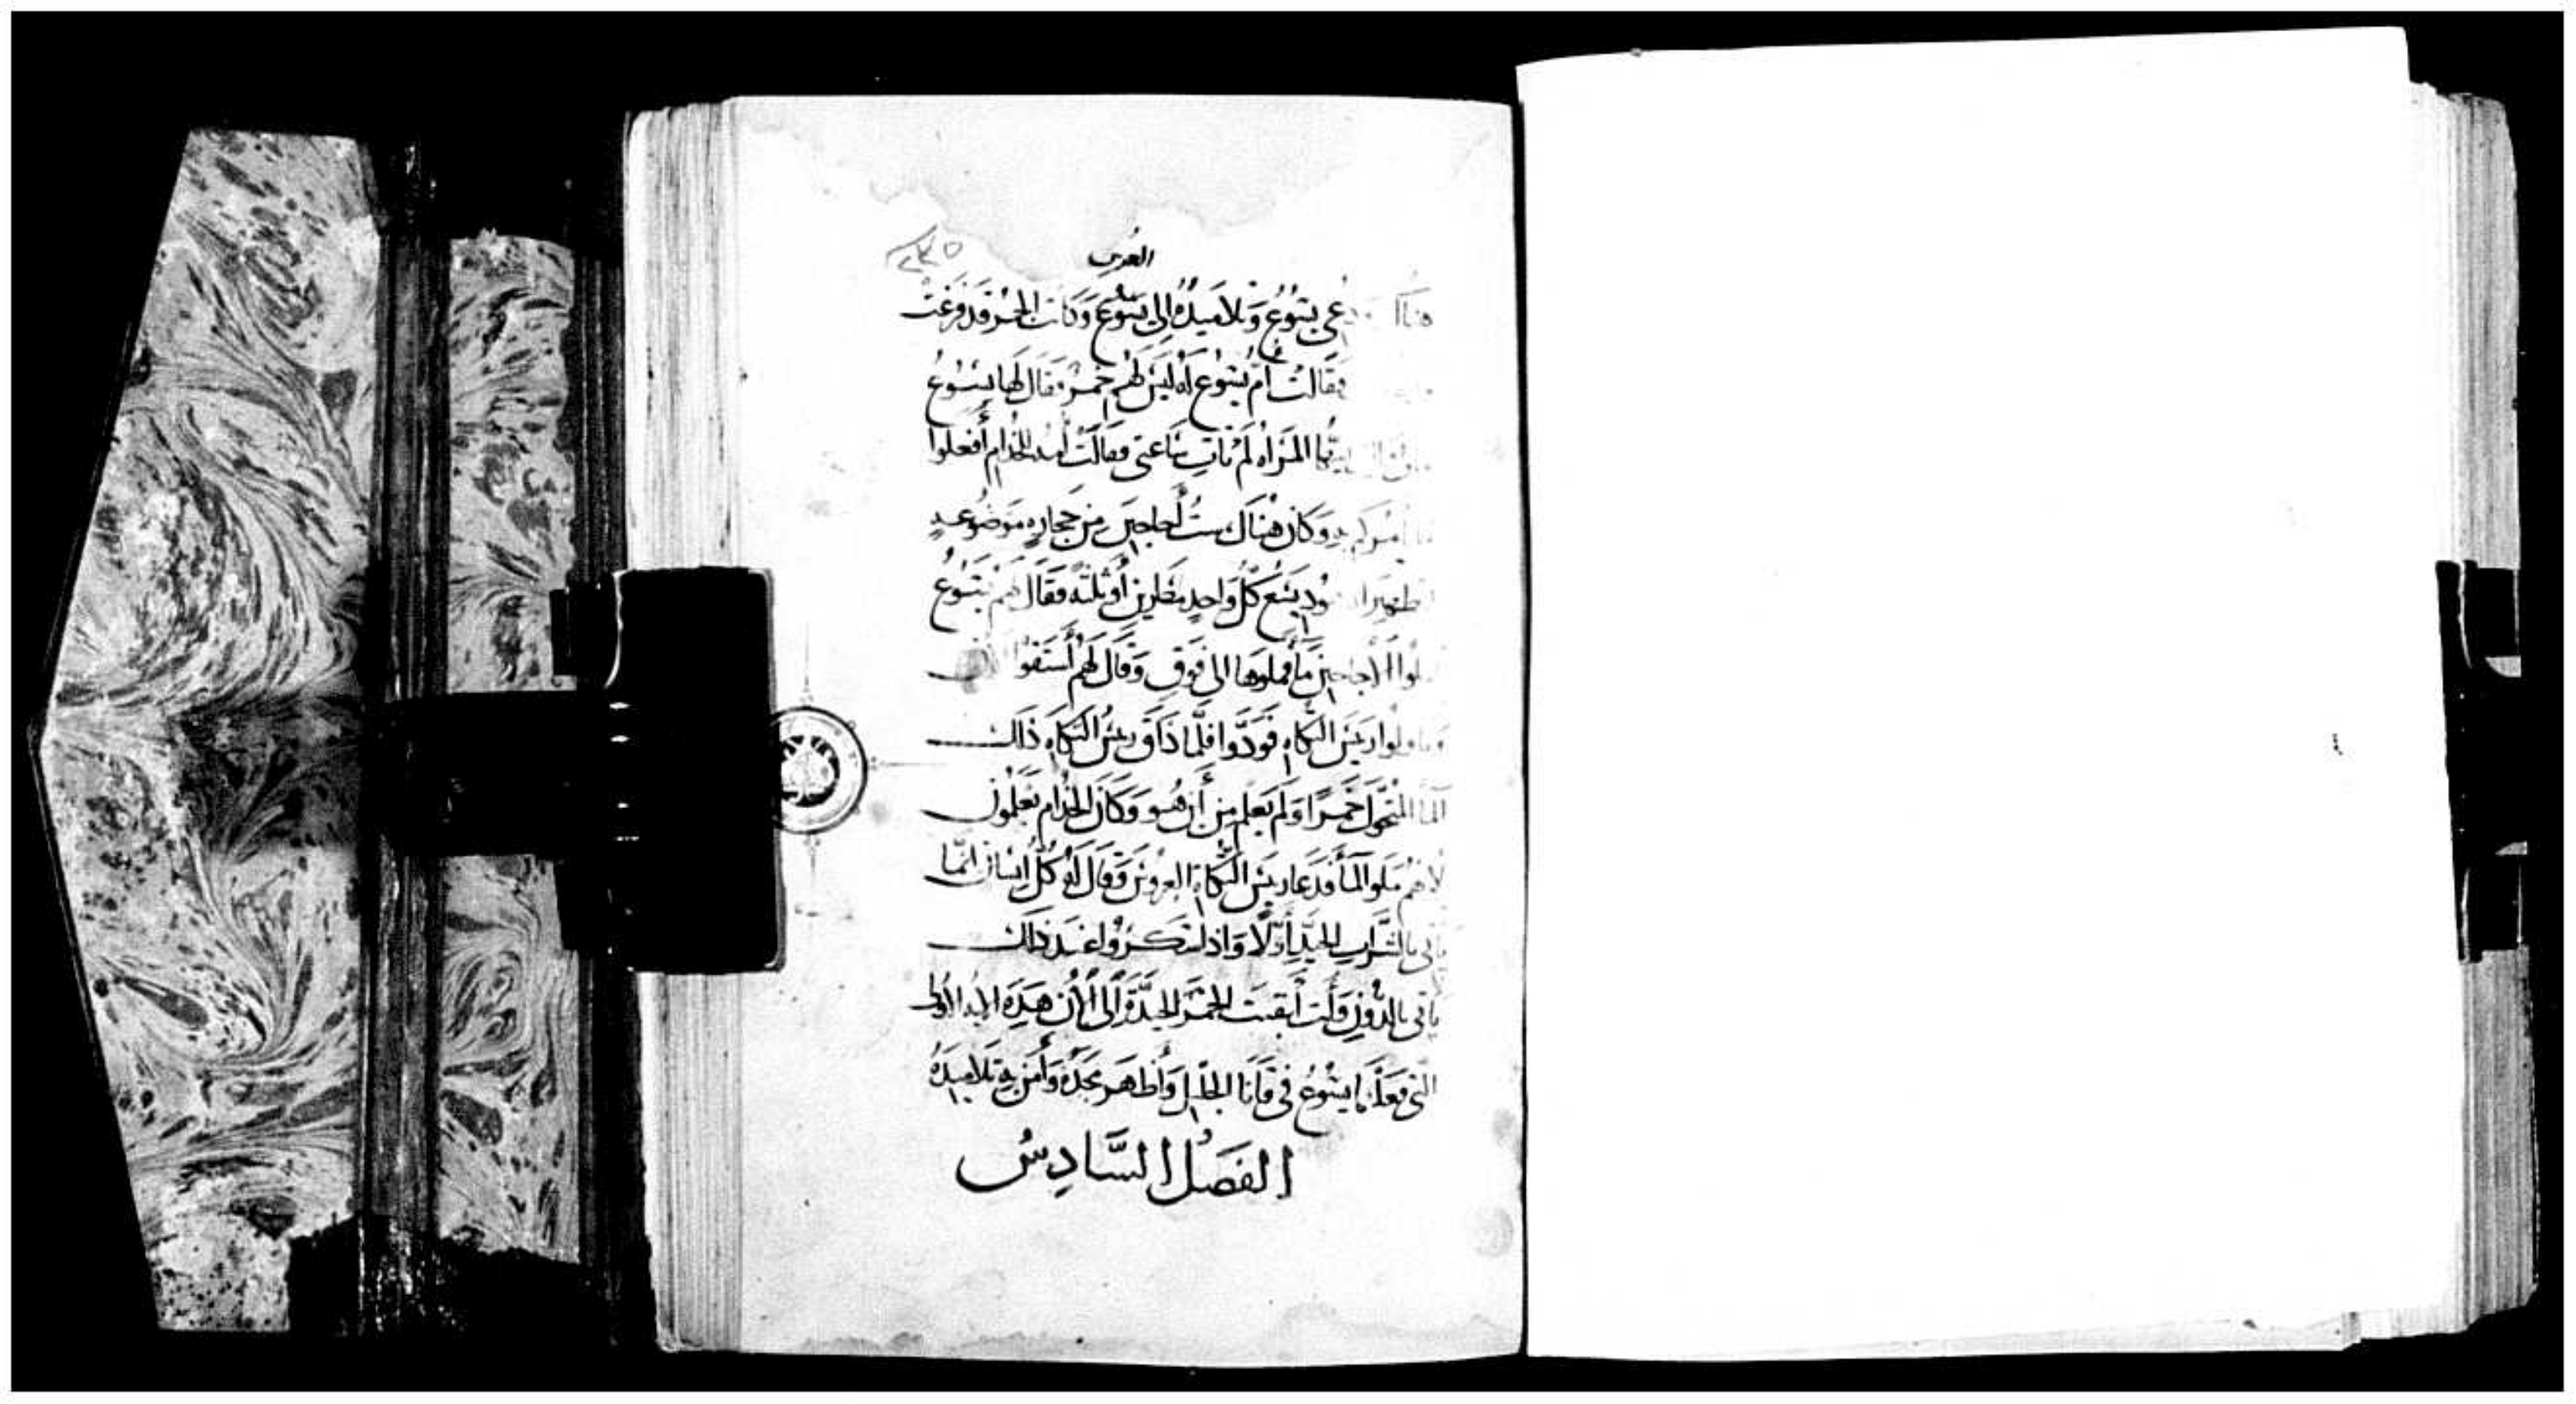 العرس
هناك ودعى يسوع وتلاميذه الى يسوع وكانت الخمر قد فرغت
فقالت أم يسوع له ليس لهم خمر وقال لها يسوع
أيتها المرأه لم تات ساعتى فقالت أمه للخدام أفعلوا
ما يامركم به وكان هناك ست أجاجين من حجاره موضوعه
لتطهير اليهود يسع كل واحد مطرين أو ثلثه فقال لهم يسوع
املوا الاجاجين ماً فملوها الى فوق وقال لهم أستقوا الان
وناولوا رييس التكاه فودوا فلما ذاق رييس التكاه ذلك
المآ المتحول خمرًا ولم يعلم من أين هو وكان الخدام يعلمون
لانهم ملوا المآ فدعا رييس التكاة العروس وقال له كل انسان انما
ياتى بالشراب الجيد أولًا واذا سكروا عند ذلك
ياتى بالدون وأنت أبقيت الخمر الجيدة الى الأن هذه الايه الاولى
التى فعلها يسوع فى قانا الجليل وأظهر مجده وأمن به تلاميذه
الفصل السادس